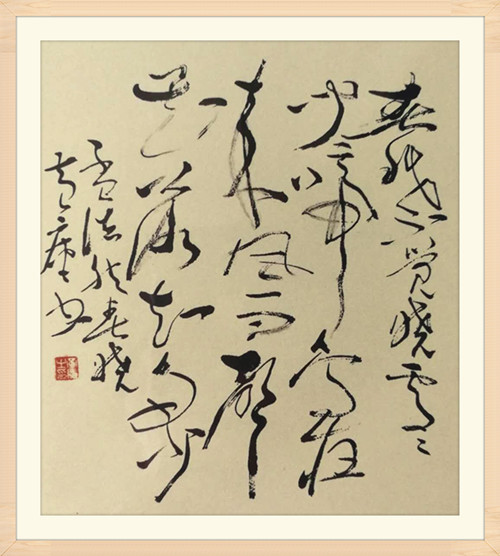 春眠不觉晓處々
闻啼鸟夜
来风雨聲
花落知多少
孟浩然春晓
书